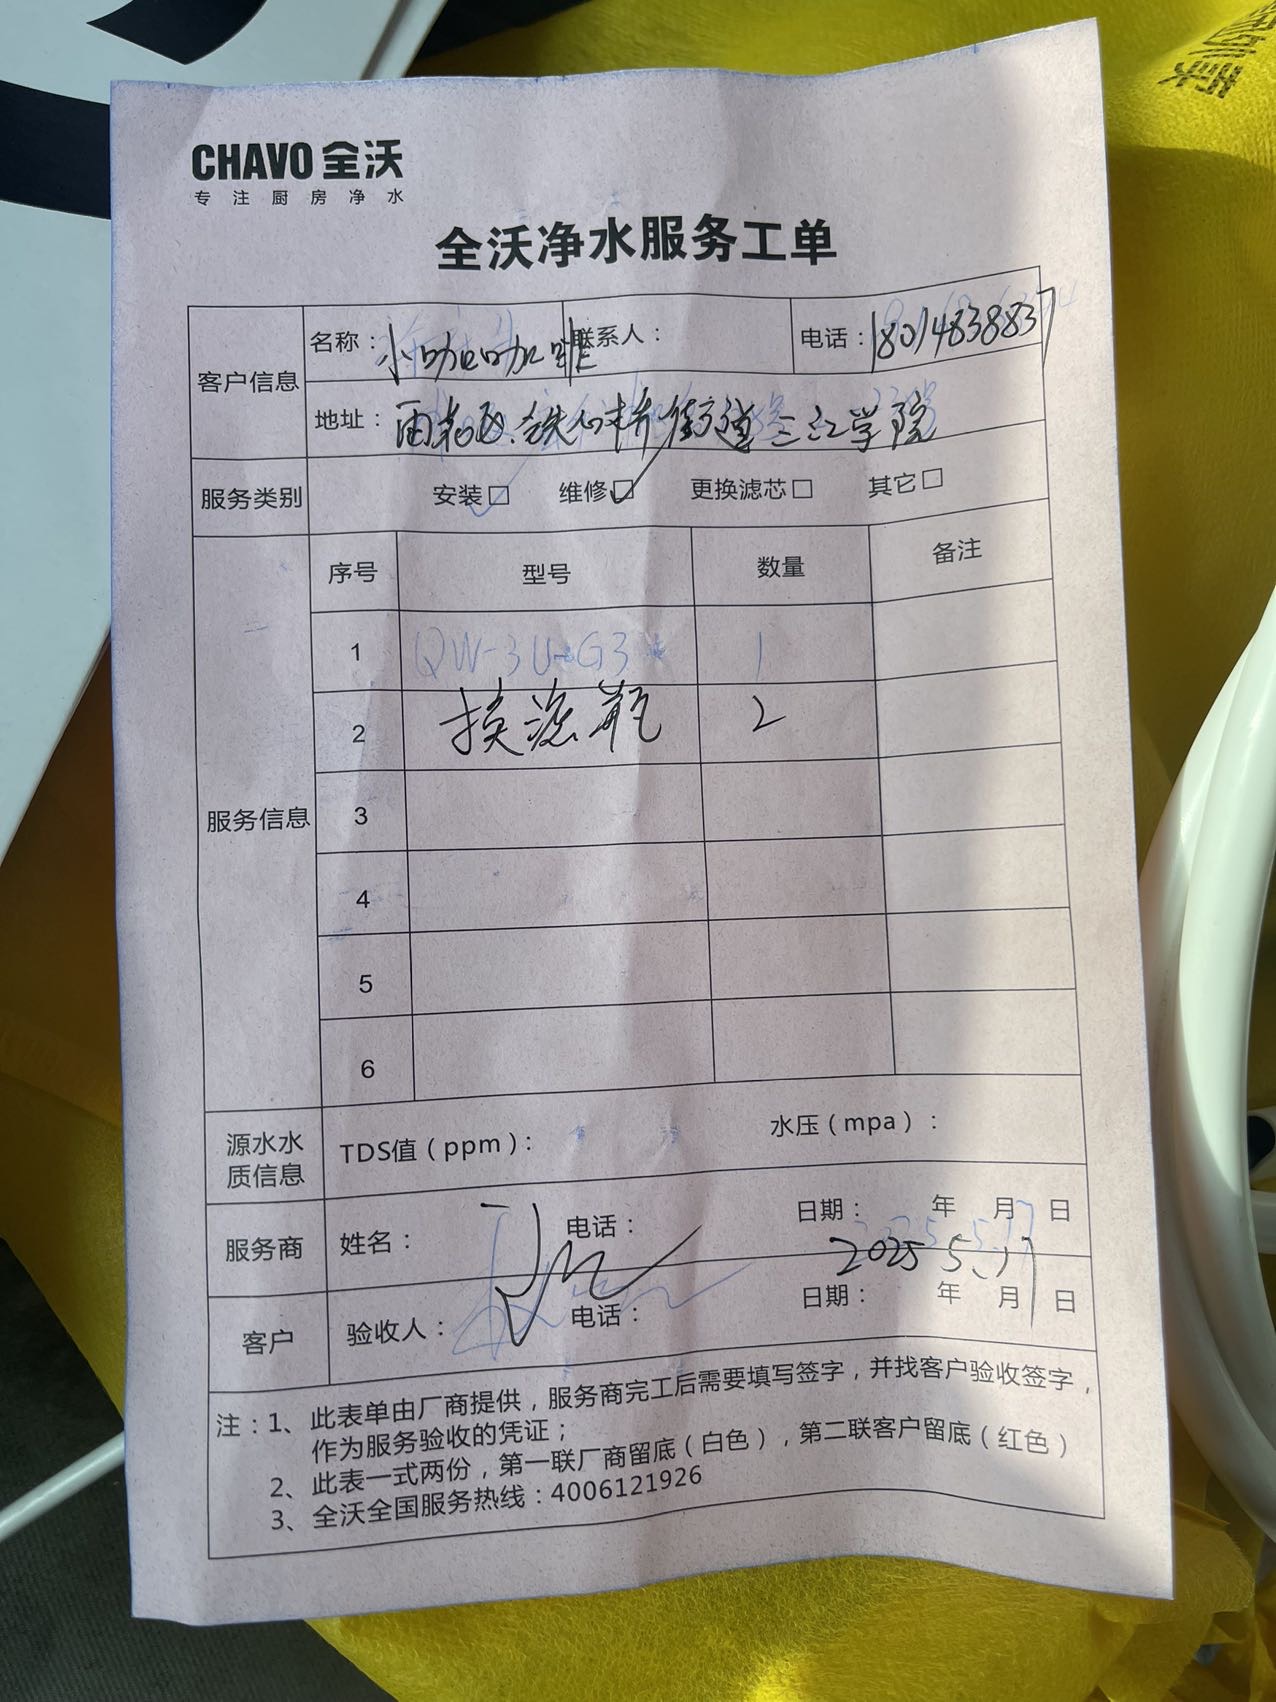 CHAVO 全沃
专注厨房净水
全沃净水服务工单
客户信息
名称：小咖咖啡 联系人： 电话：18014838837
地址：雨花区.铁心桥街道三江学院
服务类别 安装□ 维修□ 更换滤芯□ 其它□
服务信息
序号 型号 数量 备注
1 QW-3U-G3 1
2 换滤瓶 2
3
4
5
6
源水水质信息 TDS值（ppm）： 水压（mpa）：
服务商 姓名： 电话： 日期： 年 月 日
2025 5.17
客户 验收人： 电话： 日期： 年 月 日
注：1、此表单由厂商提供，服务商完工后需要填写签字，并找客户验收签字，
作为服务验收的凭证；
2、此表一式两份，第一联厂商留底（白色），第二联客户留底（红色）
3、全沃全国服务热线：4006121926